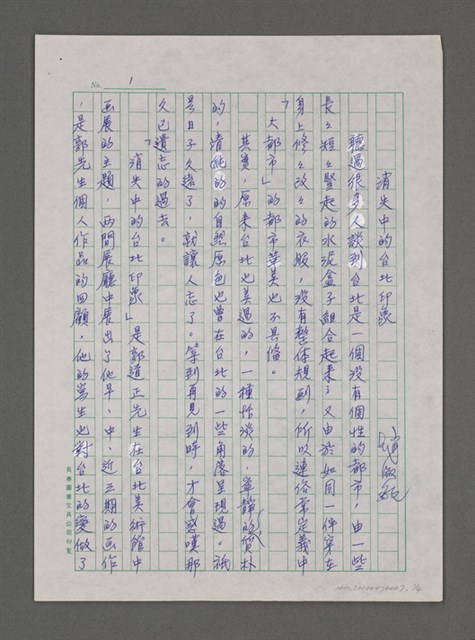 No. 1
消失中的台北印象
聽過很多人談到台北是一個沒有個性的都市,由一些
長々短々豎起的水泥盒子組合起來,又由於如同一件穿在
身上修々改々的衣服,沒有整体規劃,所以連俗常定義中
「大都市」的都市華美也不具備。
其實,原來台北也美過的,一種恬淡的,寧靜的質朴
的,清純的的自然原色也曾在台北的一些角落呈現過。祇
是日子久遠了,就讓人忘了。等到再見到時,才會感嘆那
久已遺忘的過去。
「消失中的台北印象」是郭道正先生在台北美術館中
画展的主題,两間展廳中展出了他早、中、近三期的画作
,是郭先生個人作品的回顧,他的當生也對台北的變做了
長春圖書文具公司印製